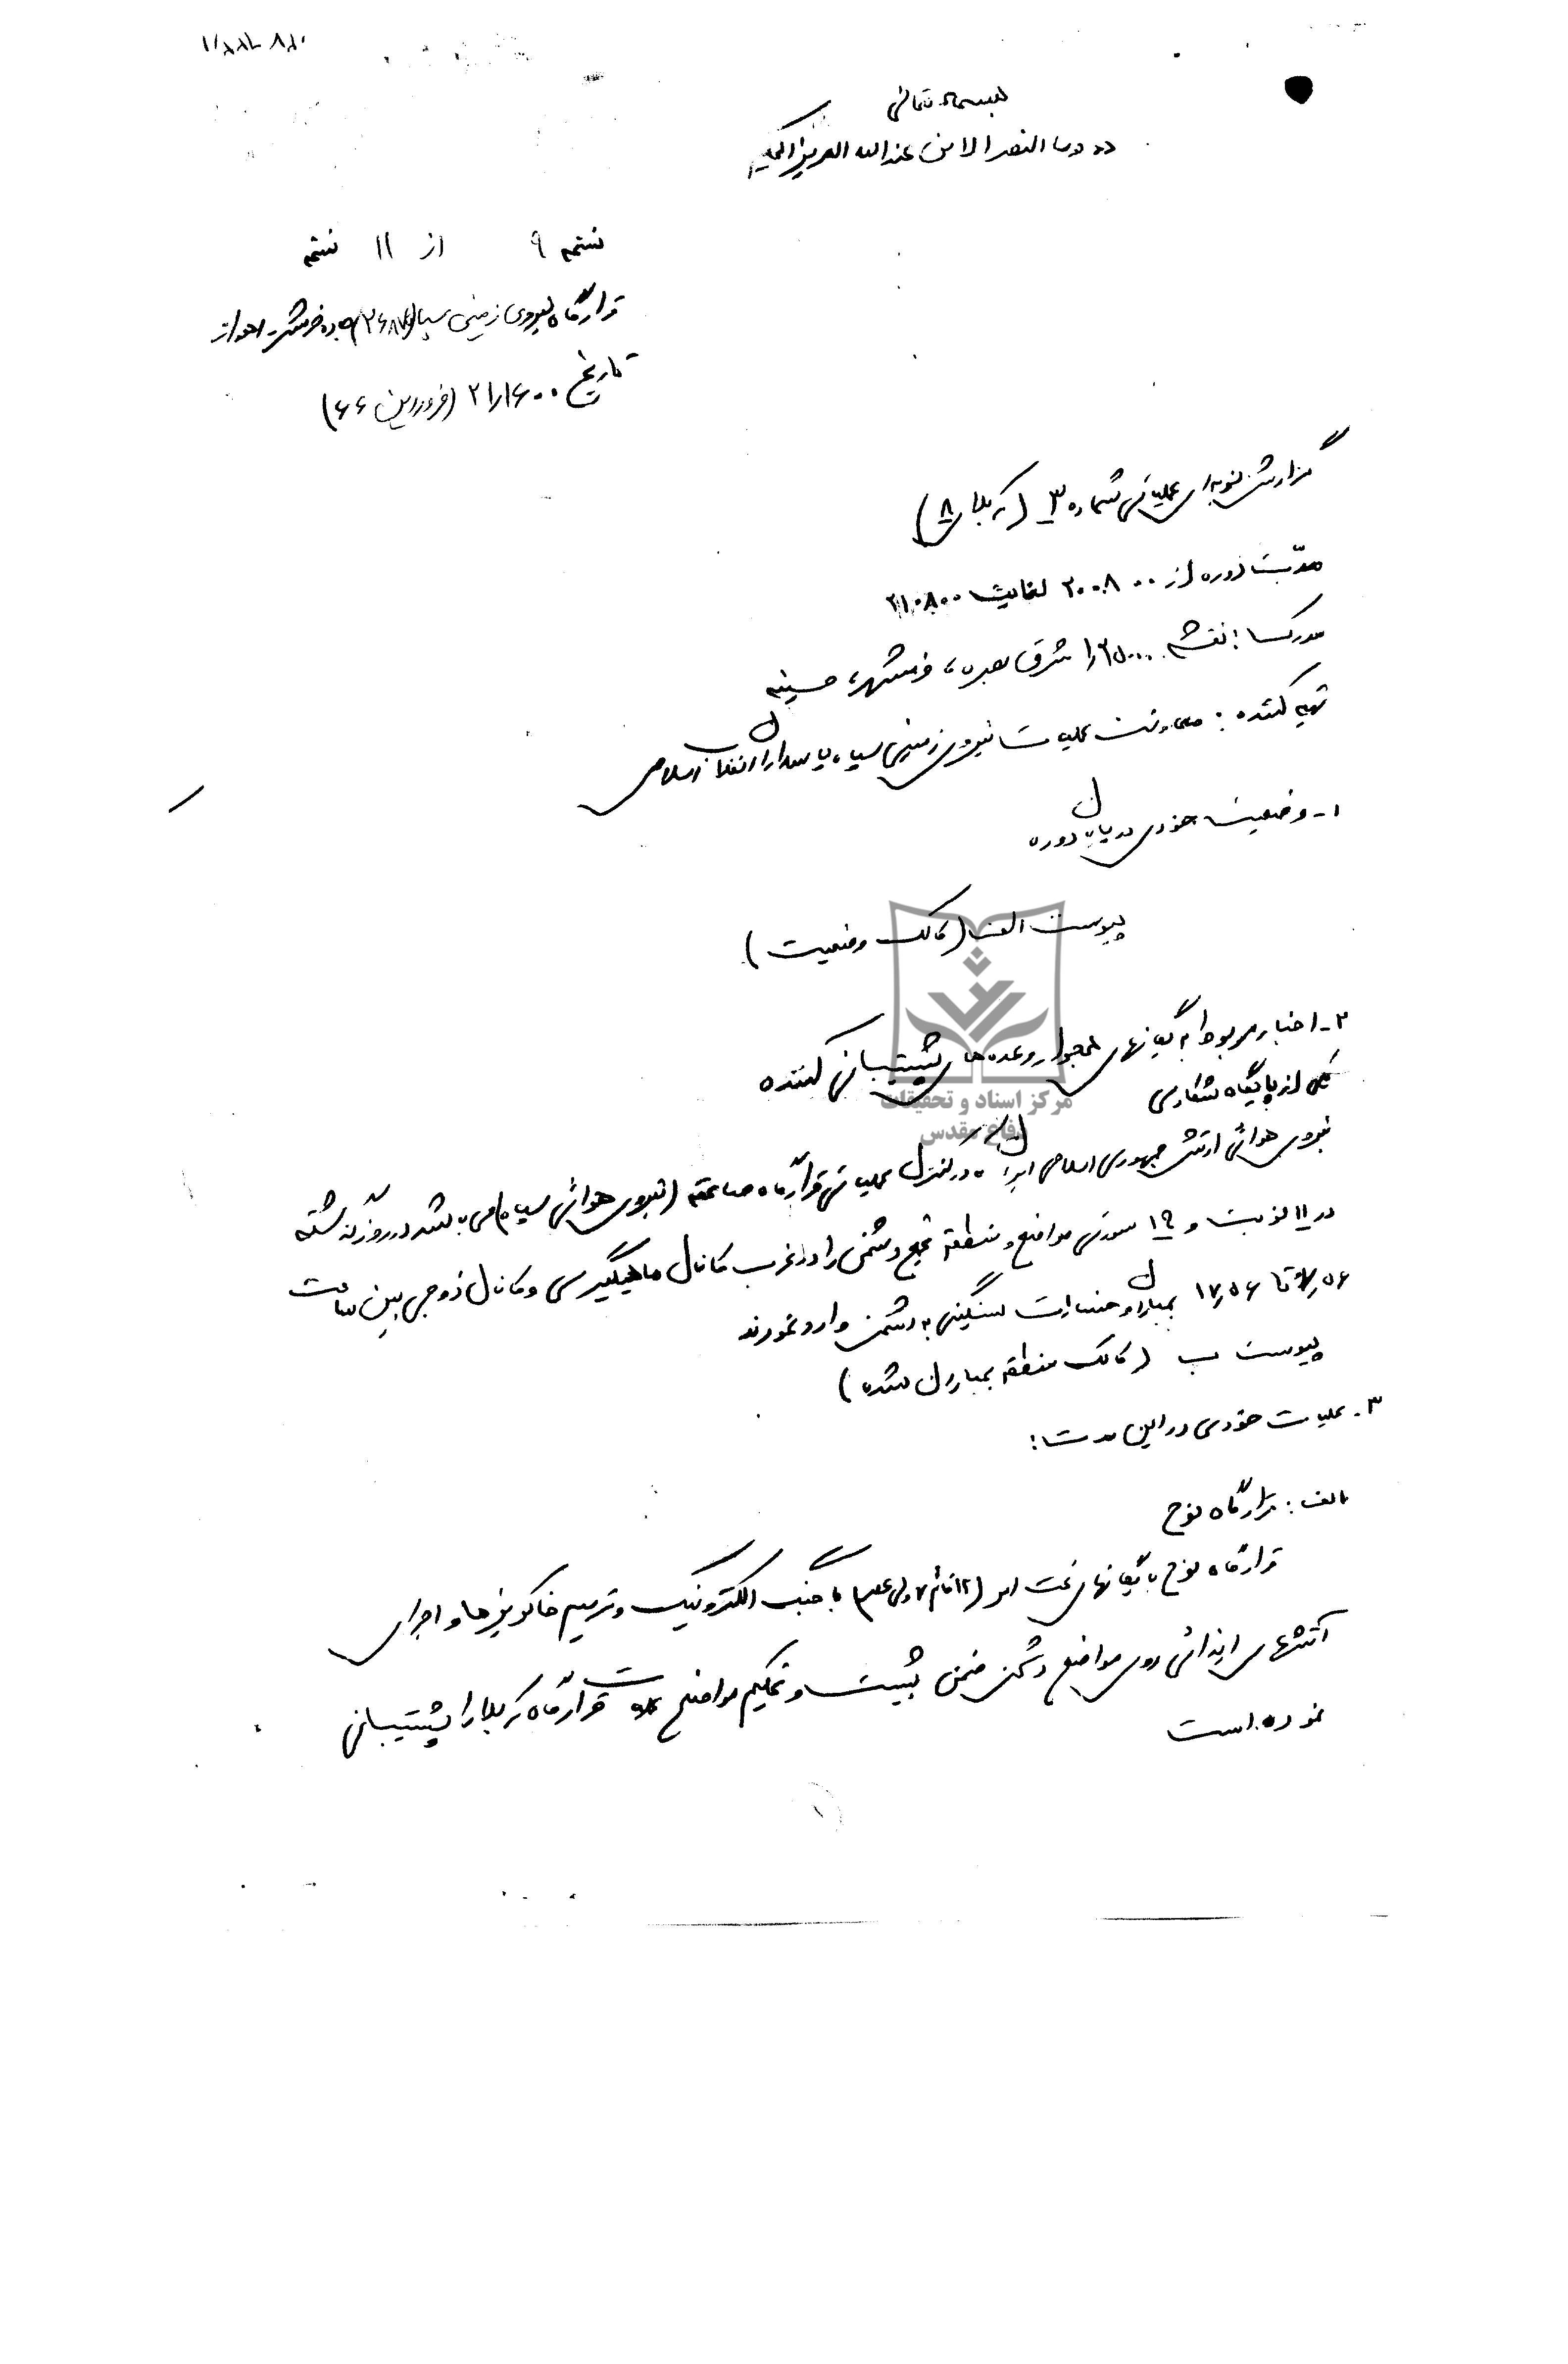 بسمه تعالی
«و ما النصر الا من عندالله العزیز الحکیم
نسخه ۹ از ۱۱ نسخه
قرارگاه نیروی زمینی سپاه جاده خرمشهر - اهواز
تاریخ (فروردین ۶۶)
گزارش نوبه‌ای عملیاتی شماره ۳ (کربلای ۸)
مدت دوره از ۲۰۰۸۰۰ لغایت ۲۱۰۸۰۰
مدرک: نقشه شرق بصره، خرمشهر، حسینیه
تهیه کننده: معاونت عملیات نیروی زمینی سپاه پاسداران انقلاب اسلامی
۱- وضعیت خودی در پایان دوره
پیوست الف (کالک وضعیت)
۲- اخبار مربوط به یگانهای همجوار و عده‌های پشتیبانی کننده
یکی از پایگاه شکاری
نیروی هوائی ارتش جمهوری اسلامی ایران که در کنترل عملیاتی قرارگاه صاعقه (نیروی هوائی سپاه) می باشد در روز گذشته
در ۱۱ نوبت و ۱۹ سورتی مواضع و منطقه تجمع دشمن را در غرب کانال ماهیگیری و کانال زوجی بین ساعت
تا ۱۷٫۵۶ بمباران و خسارات سنگینی به دشمن وارد نمودند
پیوست ب (کالک منطقه بمباران شده)
۳- عملیات خودی در این مدت:
الف: قرارگاه نوح
قرارگاه نوح با یگانهای تحت امر با جنگ الکترونیک و ترمیم خاکریزها و اجرای
آتشهای ایذائی روی مواضع دشمن ضمن تثبیت و تحکیم مواضع قرارگاه کربلا را پشتیبانی
نموده است
مرکز اسناد و تحقیقات
دفاع مقدس